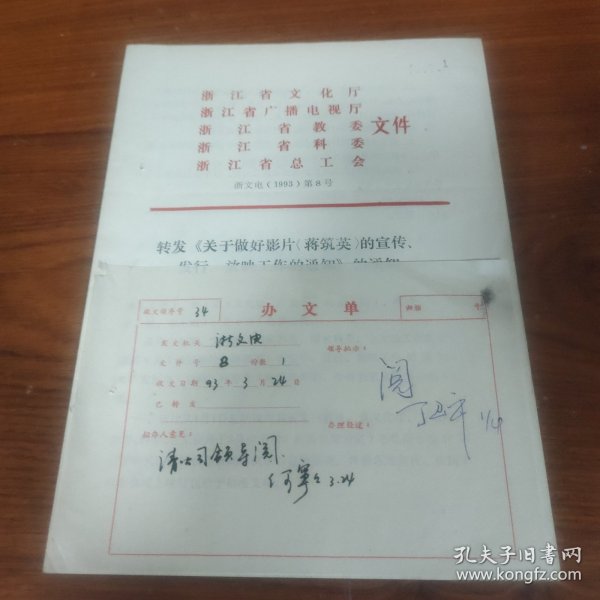 浙江省文化厅
浙江省广播电视厅
浙江省教委
浙江省科委
浙江省总工会
文件
浙文电(1993)第8号
转发《关于做好影片〈蒋筑英〉的宣传、
发行、放映工作的通知》的通知
收文顺序号 34
办文单
发文机关 浙文电
领导批示：
文件号 8 份数 1
收文日期 93年3月24日
阅
拟办人意见：
办理经过：
请公司领导阅.
3.24
孔夫子旧书网
www.kongfz.com